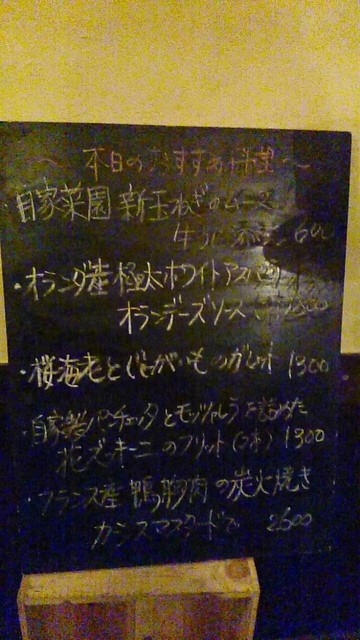 〜 本日のおすすめ料理 〜
自家菜園 新玉ねぎのムース
添え 600
・オランダ産 極太ホワイトアスパラ
オランデーズソース
・桜海老とじゃがいものガレット 1300
・自家製パンチェッタとモッツァレラを詰めた
花ズッキーニのフリット(2本) 1300
・フランス産 鴨胸肉の炭火焼き
カシスマスタードで 2600